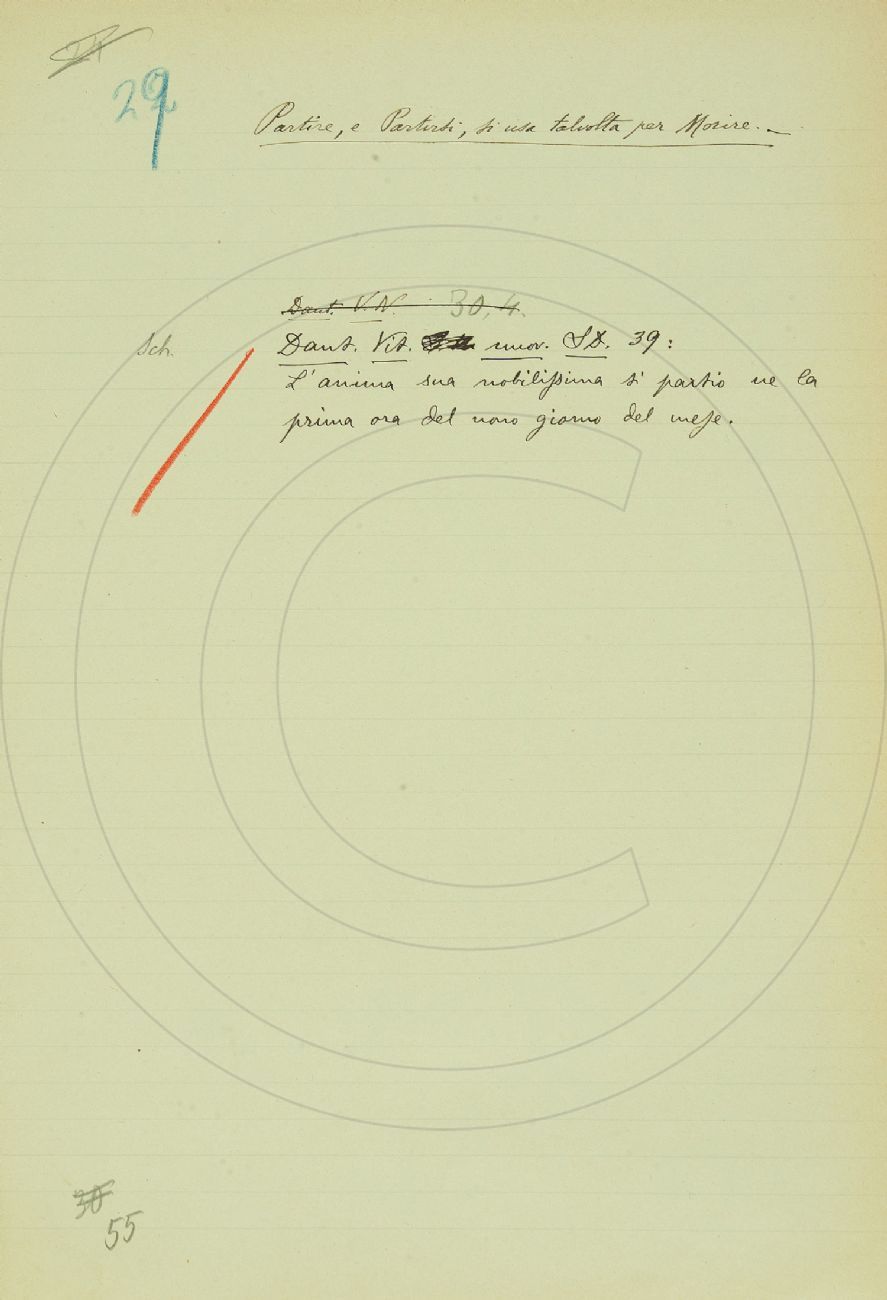 29
Partire, e Partirsi, si usa talvolta per Morire. —
Dant. V. N. 30, 4.
Sch.
Dant. Vit. nuov. SD. 39:
L'anima sua nobilissima si partio ne la
prima ora del nono giorno del mese.
30
55